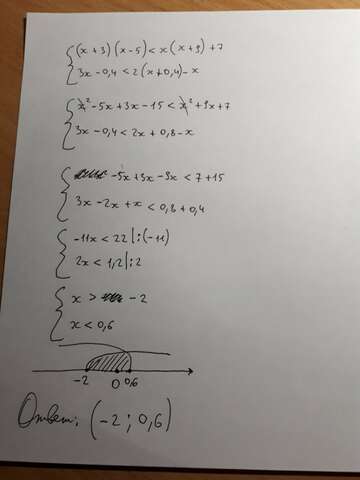 (x+3)(x-5)<x(x+9)+7
3x-0,4<2(x+0,4)-x
x²-5x+3x-15<x²+9x+7
3x-0,4<2x+0,8-x
-5x+3x-9x<7+15
3x-2x+x<0,8+0,4
-11x<22|:(-11)
2x<1,2|:2
x>-2
x<0,6
-2 0 0,6
Ответ: (-2;0,6)